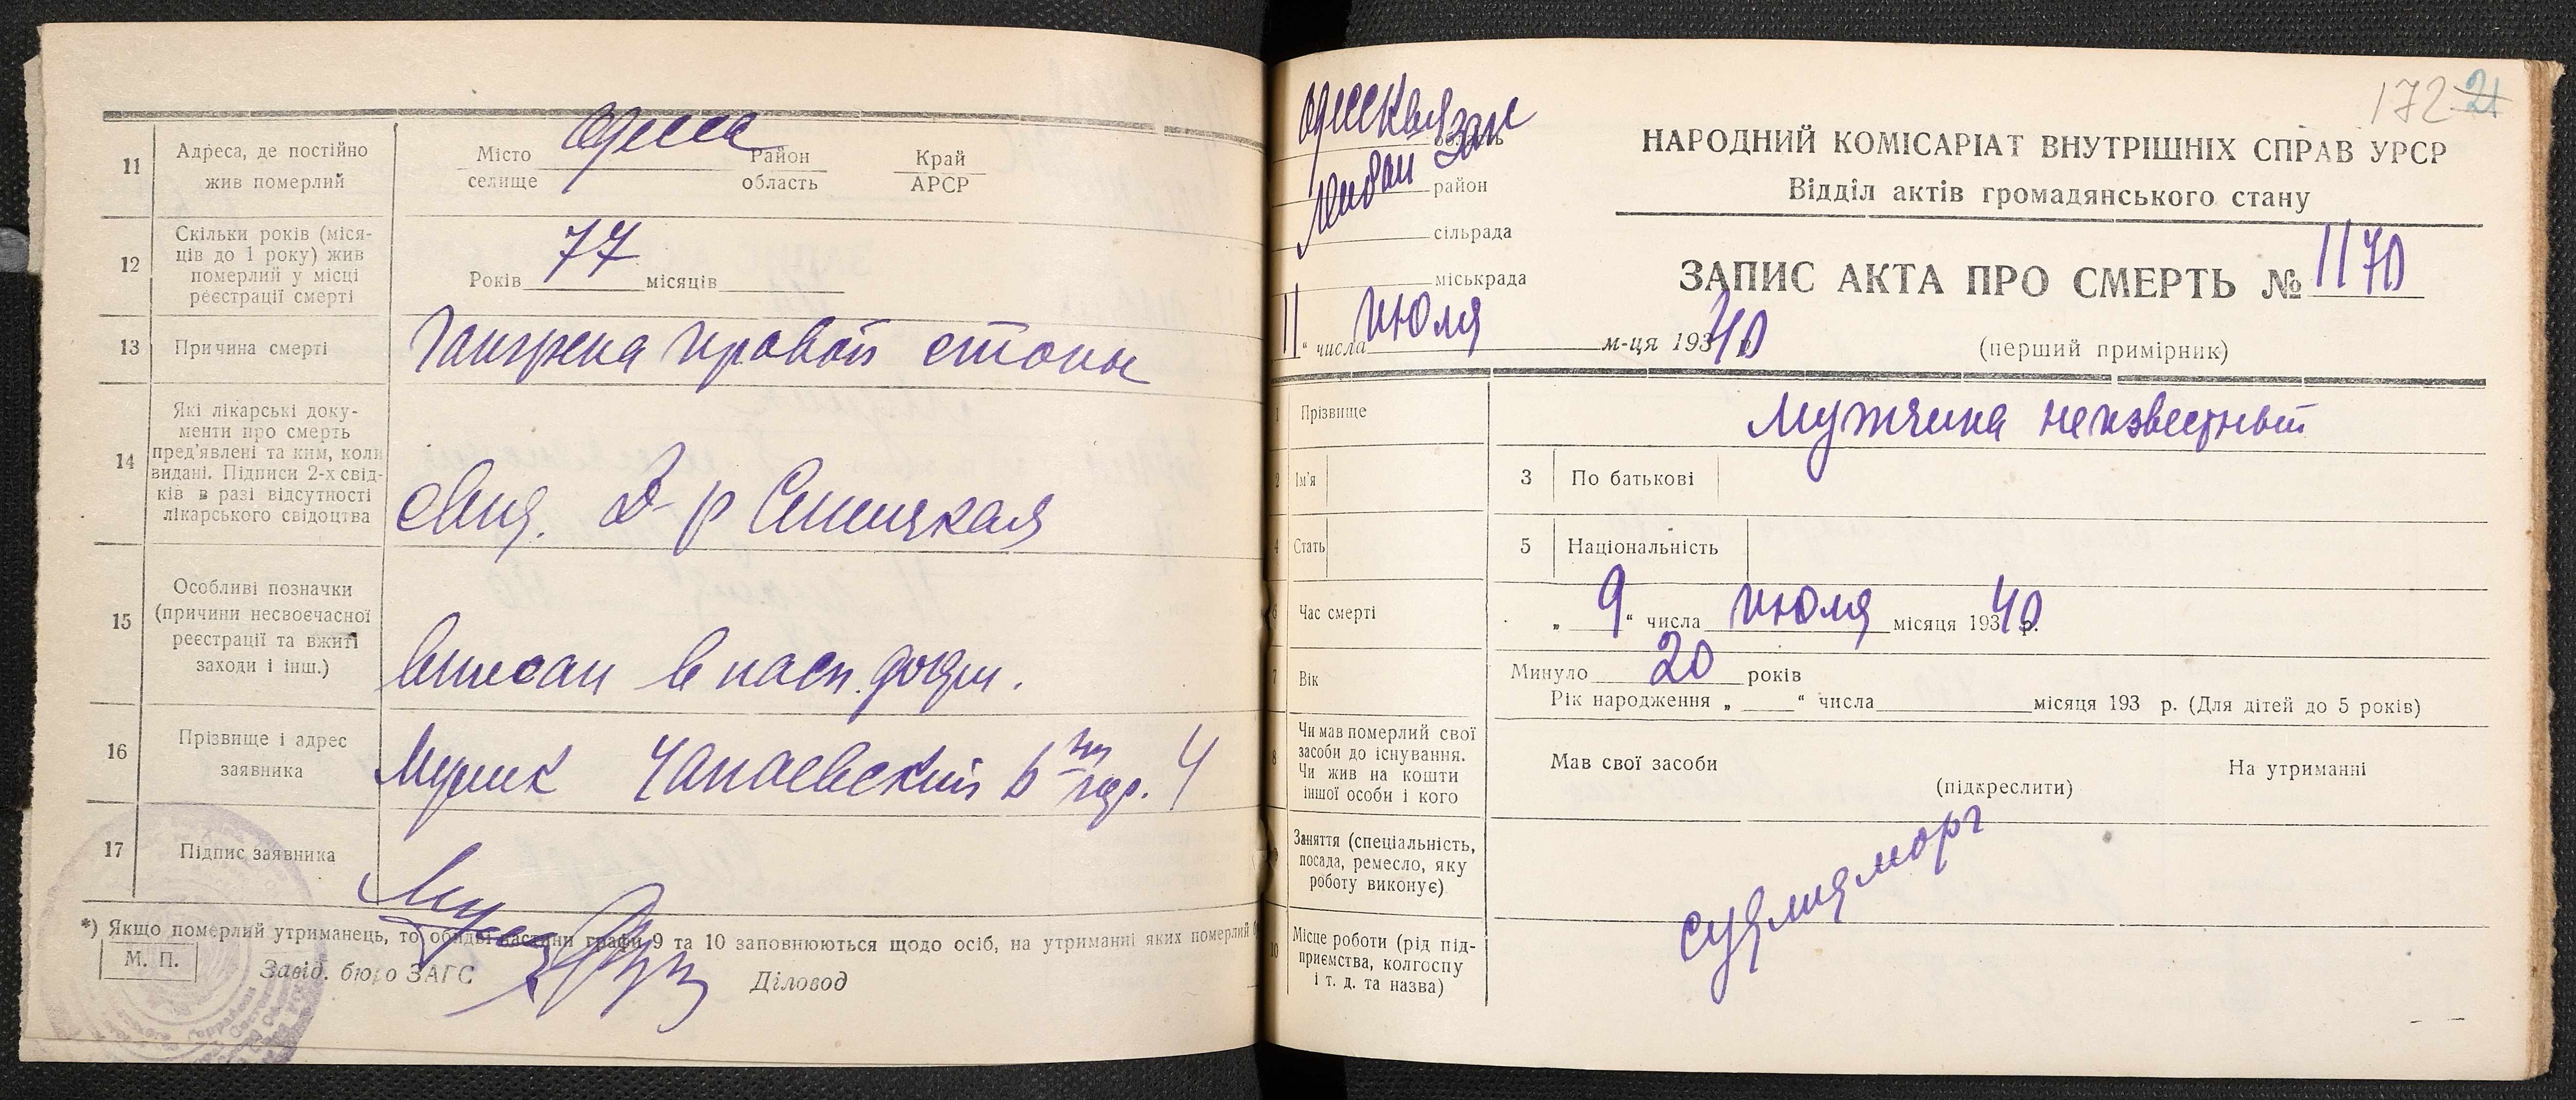 11
Адреса, де постійно
жив померлий
Місто
селище
Одесса
Район
область
Край
АРСР
12
Скільки років (міся-
ців до 1 року) жив
померлий у місці
реєстрації смерті
Років 77 місяців
13
Причина смерті
Гангрена правой стопы
14
Які лікарські доку-
менти про смерть
пред'явлені та ким, коли
видані. Підписи 2-х свід-
ків в разі відсутності
лікарського свідоцтва
Д-р Синицкая
15
Особливі позначки
(причини несвоєчасної
реєстрації та вжиті
заходи і інш.)
вписан в пасп.
16
Прізвище і адрес
заявника
Чапаевский 6 4
17
Підпис заявника
*) Якщо померлий утриманець, то обидві частини графи 9 та 10 заповнюються щодо осіб, на утриманні яких померлий
М. П.
Завід. бюро ЗАГС
Діловод
172 21
область
район
сільрада
міськрада
11 " числа июля м-ця 193 40
НАРОДНИЙ КОМІСАРІАТ ВНУТРІШНІХ СПРАВ УРСР
Відділ актів громадянського стану
ЗАПИС АКТА ПРО СМЕРТЬ № 1170
(перший примірник)
1 Прізвище
Мужчина неизвестный
2 Ім'я
3 По батькові
4 Стать
5 Національність
6 Час смерті
„ 9 " числа июля місяця 193 40 р.
7 Вік
Минуло 20 років
Рік народження „ " числа місяця 193 р. (Для дітей до 5 років)
8
Чи мав померлий свої
засоби до існування.
Чи жив на кошти
іншої особи і кого
Мав свої засоби
(підкреслити)
На утриманні
9
Заняття (спеціальність,
посада, ремесло, яку
роботу виконує)
10
Місце роботи (рід під-
приємства, колгоспу
і т. д. та назва)
морг